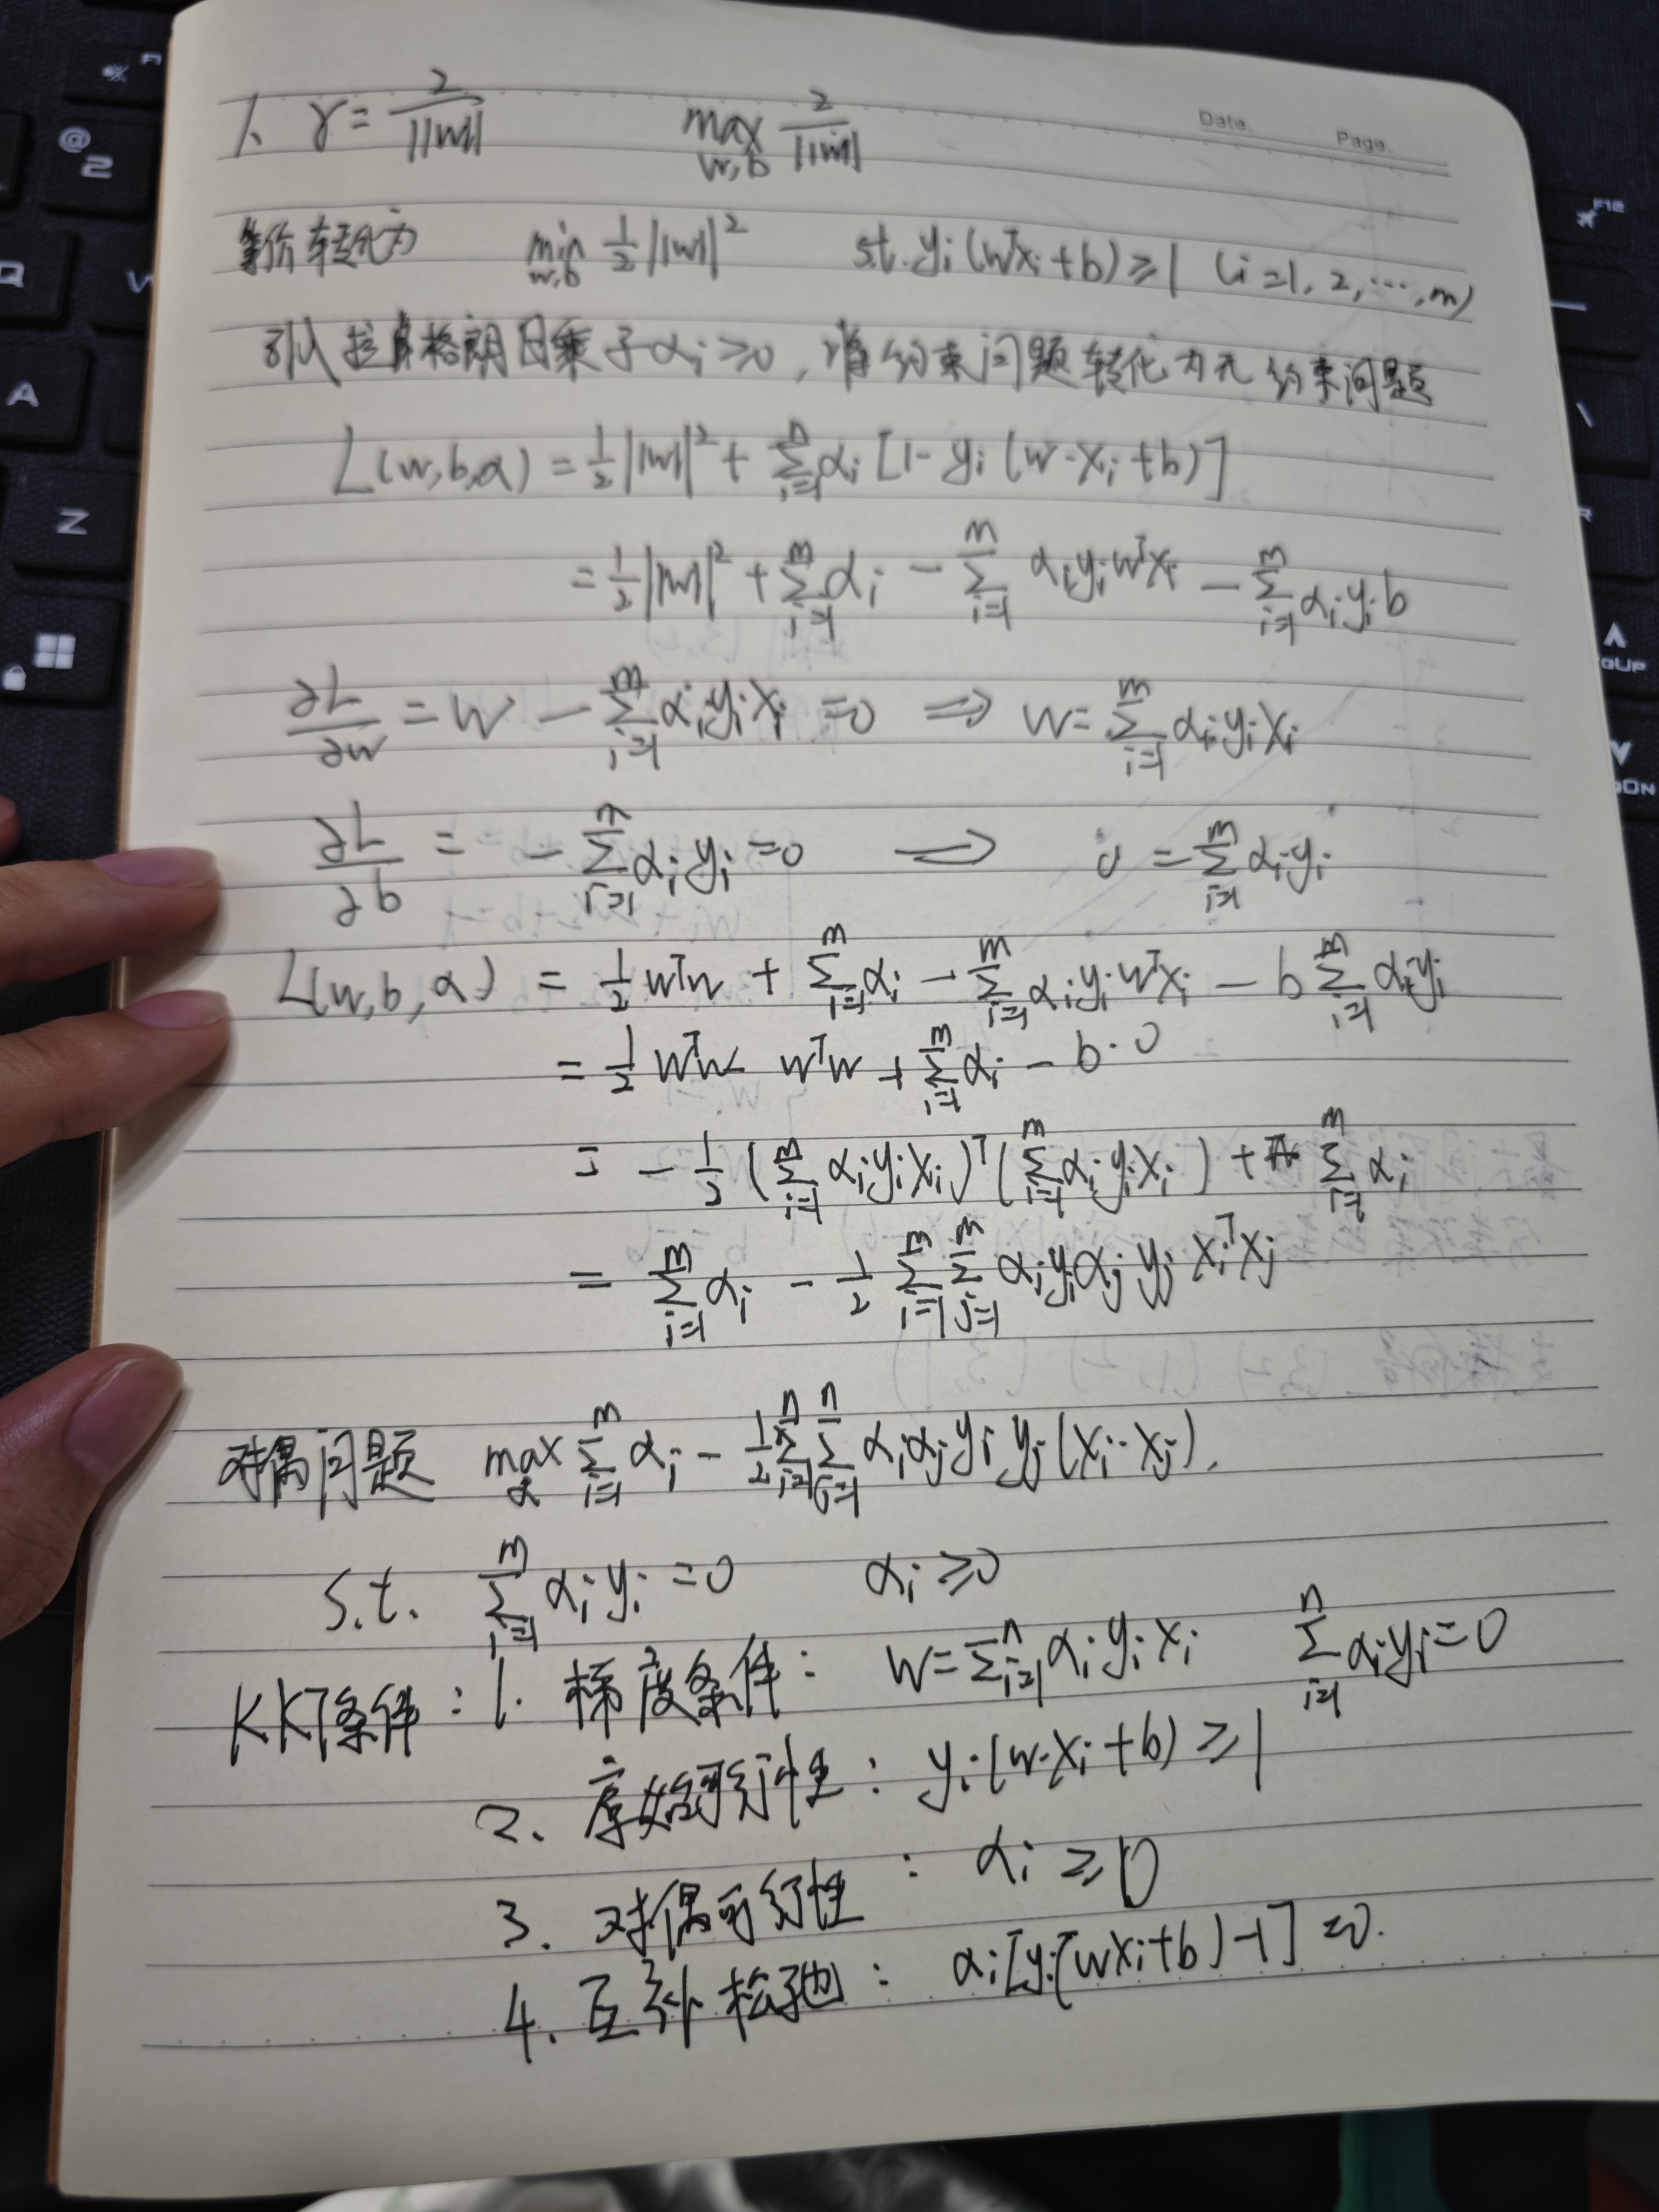 Date. Page.
1、 γ = 2/||w|| max w,b 2/||w||
等价转化为 min w,b 1/2 ||w||² s.t. yi (wᵀxi + b) ≥ 1 (i=1, 2, ···, m)
引入拉格朗日乘子 αi ≥ 0, 将约束问题转化为无约束问题
L(w,b,α) = 1/2 ||w||² + Σ_{i=1}^{n} αi [1 - yi (w·xi + b)]
= 1/2 ||w||² + Σ_{i=1}^{m} αi - Σ_{i=1}^{m} αi yi wᵀxi - Σ_{i=1}^{m} αi yi b
∂L/∂w = w - Σ_{i=1}^{m} αi yi xi = 0 ⟹ w = Σ_{i=1}^{m} αi yi xi
∂L/∂b = - Σ_{i=1}^{n} αi yi = 0 ⟹ 0 = Σ_{i=1}^{m} αi yi
L(w,b,α) = 1/2 wᵀw + Σ_{i=1}^{m} αi - Σ_{i=1}^{m} αi yi wᵀxi - b Σ_{i=1}^{m} αi yi
= 1/2 wᵀw - wᵀw + Σ_{i=1}^{m} αi - b·0
= - 1/2 (Σ_{i=1}^{m} αi yi xi)ᵀ (Σ_{i=1}^{m} αi yi xi) + Σ_{i=1}^{m} αi
= Σ_{i=1}^{m} αi - 1/2 Σ_{i=1}^{m} Σ_{j=1}^{m} αi yi αj yj xiᵀxj
对偶问题 max α Σ_{i=1}^{m} αi - 1/2 Σ_{i=1}^{n} Σ_{j=1}^{n} αi αj yi yj (xi·xj),
s.t. Σ_{i=1}^{m} αi yi = 0 αi ≥ 0
KKT条件: 1. 梯度条件: w = Σ_{i=1}^{n} αi yi xi Σ_{i=1}^{n} αi yi = 0
2. 原始可行性: yi (w·xi + b) ≥ 1
3. 对偶可行性: αi ≥ 0
4. 互补松弛: αi [yi (wxi + b) - 1] = 0.
@
2
Q
W
A
Z
F12